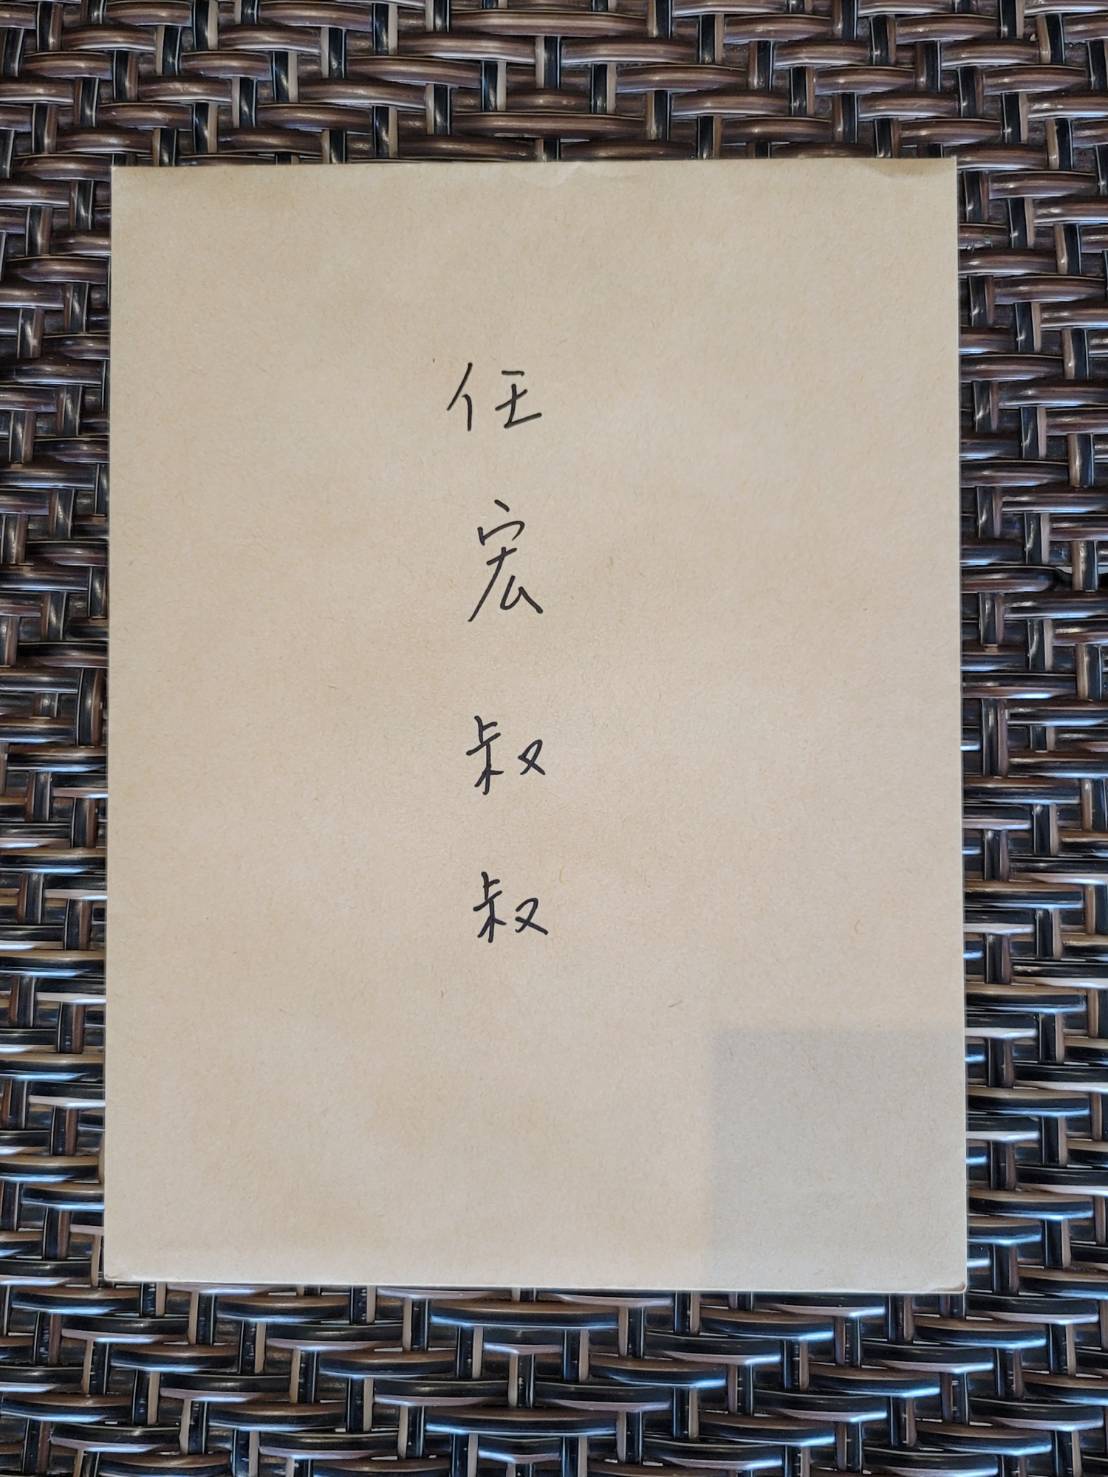 任宏叔叔